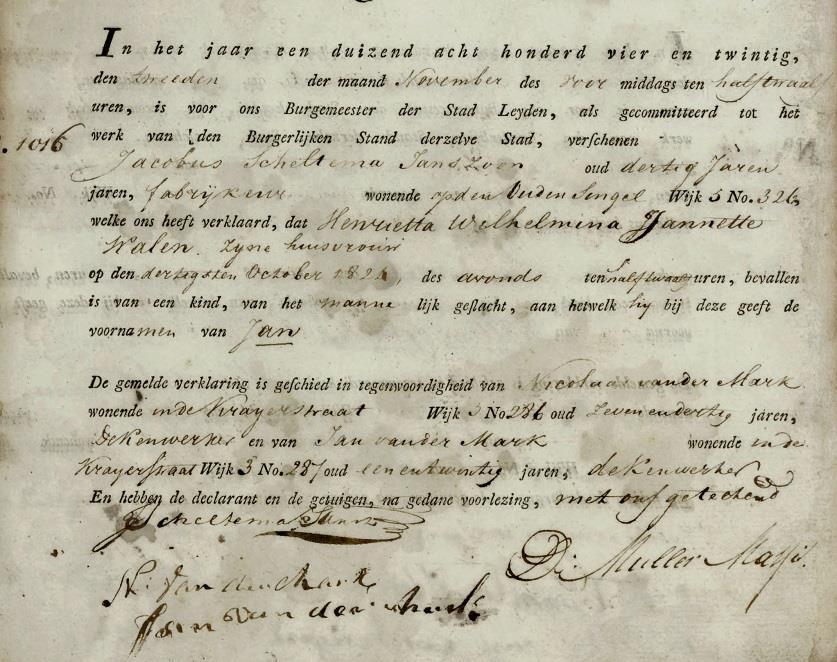 In het jaar een duizend acht honderd vier en twintig,
den tweeden der maand November des voor middags ten halftwaalf
uren, is voor ons Burgemeester der Stad Leyden, als gecommitteerd tot het
1016 werk van den Burgerlijken Stand derzelve Stad, verschenen
Jacobus Scheltema Janszoon oud dertig Jaren
jaren, fabrijkeur wonende op den Ouden Singel Wijk 5 No. 326,
welke ons heeft verklaard, dat Henrietta Wilhelmina Jannette
Walen zyne huisvrouw
op den dertigsten October 1824, des avonds ten halftwaalf uren, bevallen
is van een kind, van het manne lijk geslacht, aan hetwelk hij bij deze geeft de
voornamen van Jan
De gemelde verklaring is geschied in tegenwoordigheid van Nicolaas van der Mark
wonende in de Krayerstraat Wijk 3 No. 286 oud Zevenendertig jaren,
dekenwerker en van Jan van der Mark wonende in de
Krayerstraat Wijk 3 No. 287 oud eenentwintig jaren, dekenwerker
En hebben de declarant en de getuigen, na gedane voorlezing, met ons getekend
J Scheltema Jansz
N: Van der Mark
Jan van der Mark
D: Muller Massis